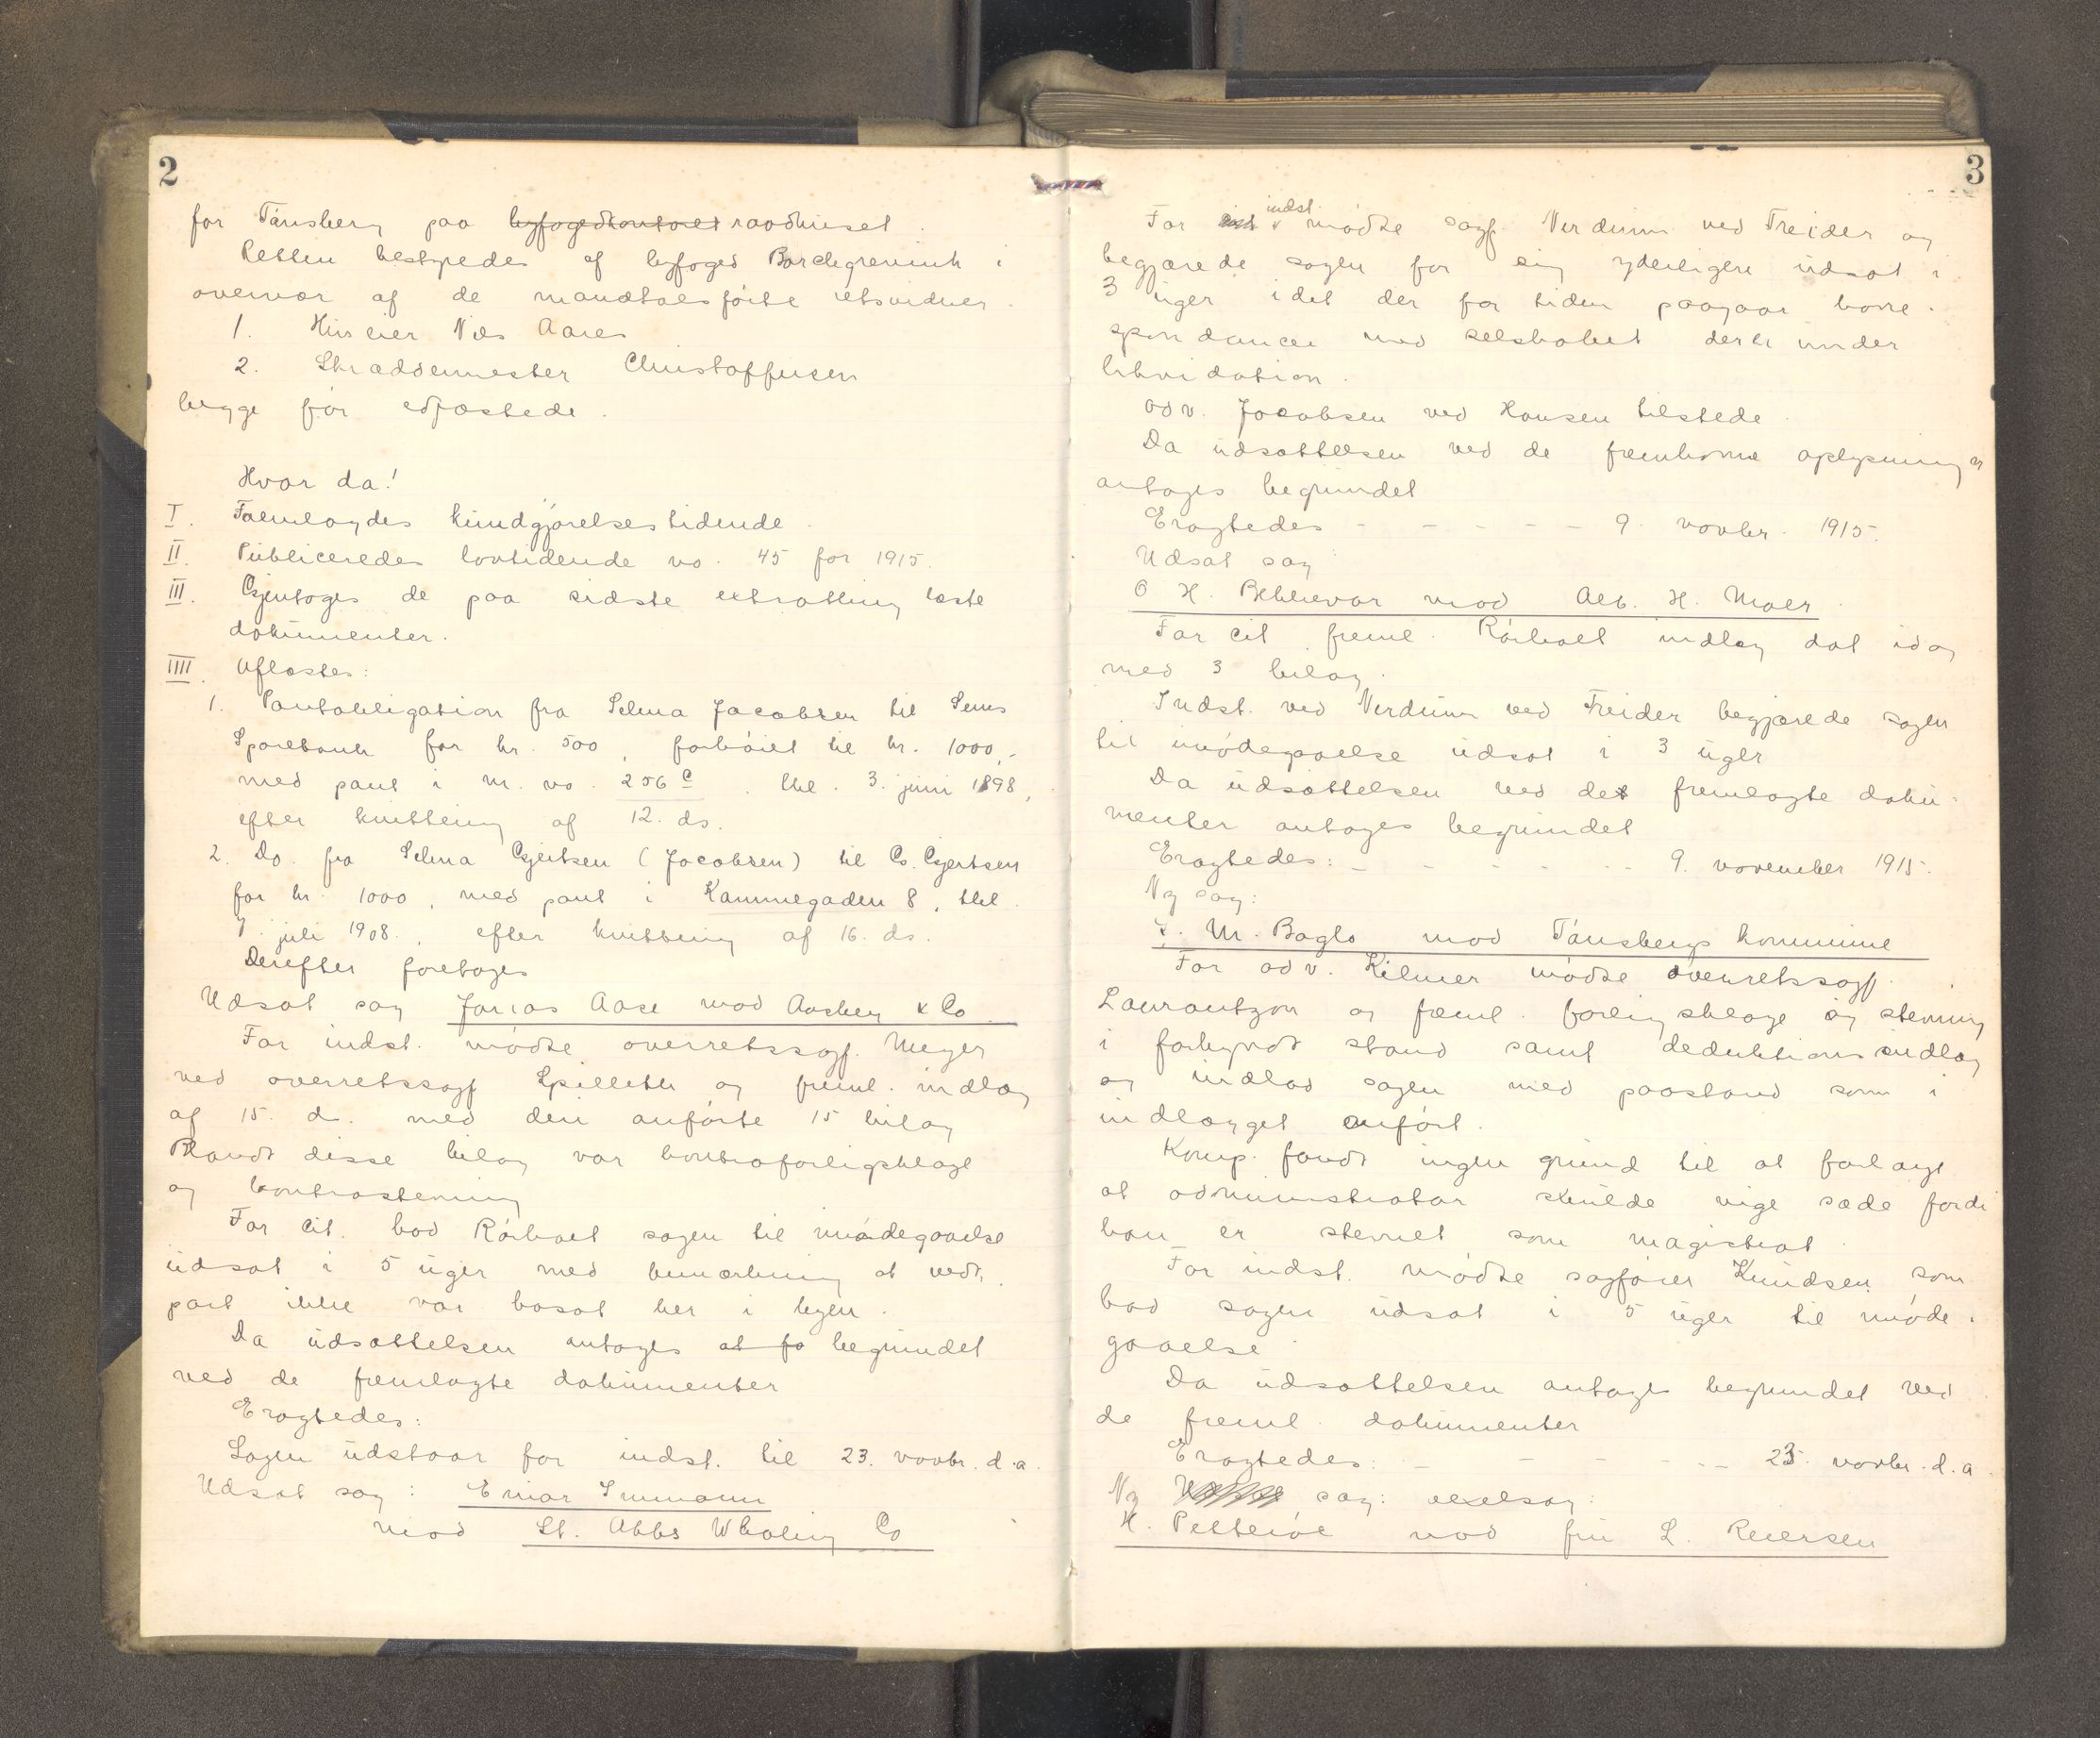 2
for Tønsberg paa byfogedkontoret raadhuset.
Retten bestyredes af byfoged Borchgrevink i
overvær af de mandtalsførte retsvidner.
1. Huseier Nils Aares
2. Skræddermester Christoffersen
begge før edfæstede.
Hvor da!
I. Fremlagdes kundgjørelsestidende.
II. Publiceredes lovtidende no. 45 for 1915.
III. Gjentoges de paa sidste extratting læste
dokumenter.
IIII. Aflæstes:
1. Pantobligation fra Selma Jacobsen til Sems
Sparebank for kr. 500, forhøiet til kr. 1000,-
med pant i m. no. 256 c. thl. 3. juni 1898,
efter kvittering af 12. ds.
2. Do. fra Selma Gjertsen (Jacobsen) til G. Gjertsen
for kr. 1000, med pant i Kammegaden 8, thl.
7. juli 1908., efter kvittering af 16. ds.
Derefter foretoges
Udsat sag Jonas Aase mod Aasberg & Co.
For indst. mødte overretssagf. Meyer
ved overretssagf. Spilleth og freml. indlæg
af 15. d. med deri anførte 15 bilag
Blandt disse bilag var kontraforligsklage
og kontrastevning
For cit. bad Rørholt sagen til imødegaaelse
udsat i 5 uger med bemærkning at vedk.
part ikke var bosat her i byen.
Da udsættelsen antages at fo begrundet
ved de fremlagte dokumenter
Eragtedes:
Sagen udstaar for indst. til 23. novbr. d.a.
Udsat sag: Einar Simmonn
mod St. Abbs Whaling Co
3
For indst. mødte sagf. Nerdrum ved Treider og
begjærede sagen for sig yderligere udsat i
3 uger idet der for tiden paagaar korre-
spondance med selskabet der er under
likvidation.
Adv. Jacobsen ved Hansen tilstede.
Da udsættelsen ved de fremkomne oplysninger
antages begrundet
Eragtedes - - - - - - 9. novbr. 1915.
Udsat sag:
O H. Bekkevar mod Alb. H. Moer.
For cit. freml. Rørholt indlæg dat. idag
med 3 bilag.
Indst. ved Nerdrum ved Treider begjærede sagen
til imødegaaelse udsat i 3 uger
Da udsættelsen ved det fremlagte doku-
menter antages begrundet
Eragtedes: - - - - - - 9. november 1915.
Ny sag:
F. M. Baglo mod Tønsbergs kommune
For adv. Kilmer mødte overretssagf.
Laurantzon og freml. forligsklage og stevning
i forkyndt stand samt deduktionsindlæg
og indlod sagen med paastand som i
indlægget anført.
Komp. fandt ingen grund til at forlange
at administrator skulde vige sæde fordi
han er stevnet som magistrat.
For indst. mødte sagfører Knudsen som
bad sagen udsat i 5 uger til imøde-
gaaelse
Da udsættelsen antages begrundet ved
de freml. dokumenter
Eragtedes: - - - - - 23. novbr. d.a.
Ny sag: vexelsag:
H. Pettersøe mod fru L. Reiersen